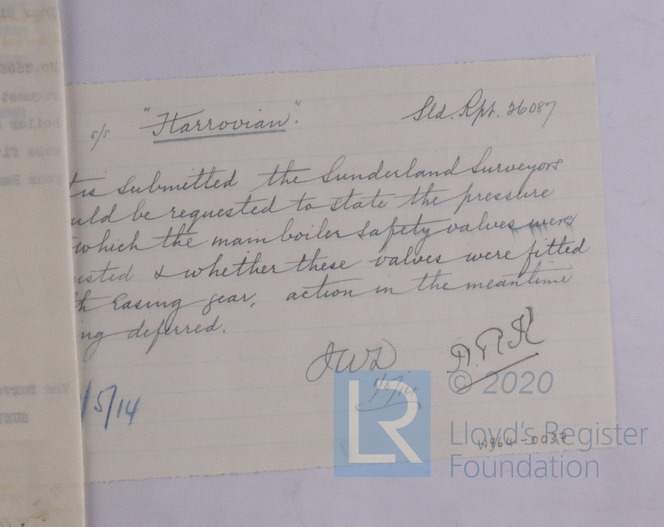 s/s "Harrovian". Sld. Rpt. 26087
t is submitted the Sunderland Surveyors
uld be requested to state the pressure
which the main boiler safety valves were
usted & whether these valves were fitted
th easing gear, action in the meantime
ng deferred.
JWD.
/5/14
© 2020
LR
Lloyd's Register
Foundation
W964-0037